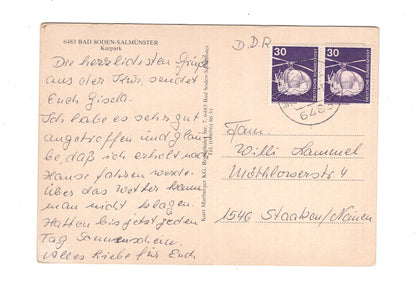 6483 BAD SODEN-SALMÜNSTER
Kurpark
Die herzlichsten Grüße
aus der Kur, sendet
Euch Gisela.
Ich habe es sehr gut
angetroffen und glau-
be, daß ich erholt nach
Hause fahren werde.
Über das Wetter kann
man nicht klagen.
Hatten bis jetzt jeden
Tag Sonnenschein.
Alles Liebe für Euch
Kurt Marburger KG, 6483 Bad Soden-Salmünster
DDR
30
30
DEUTSCHE BUNDESPOST
DEUTSCHE BUNDESPOST
Fam.
Willi Lammel
1546 Staaken/Nauen